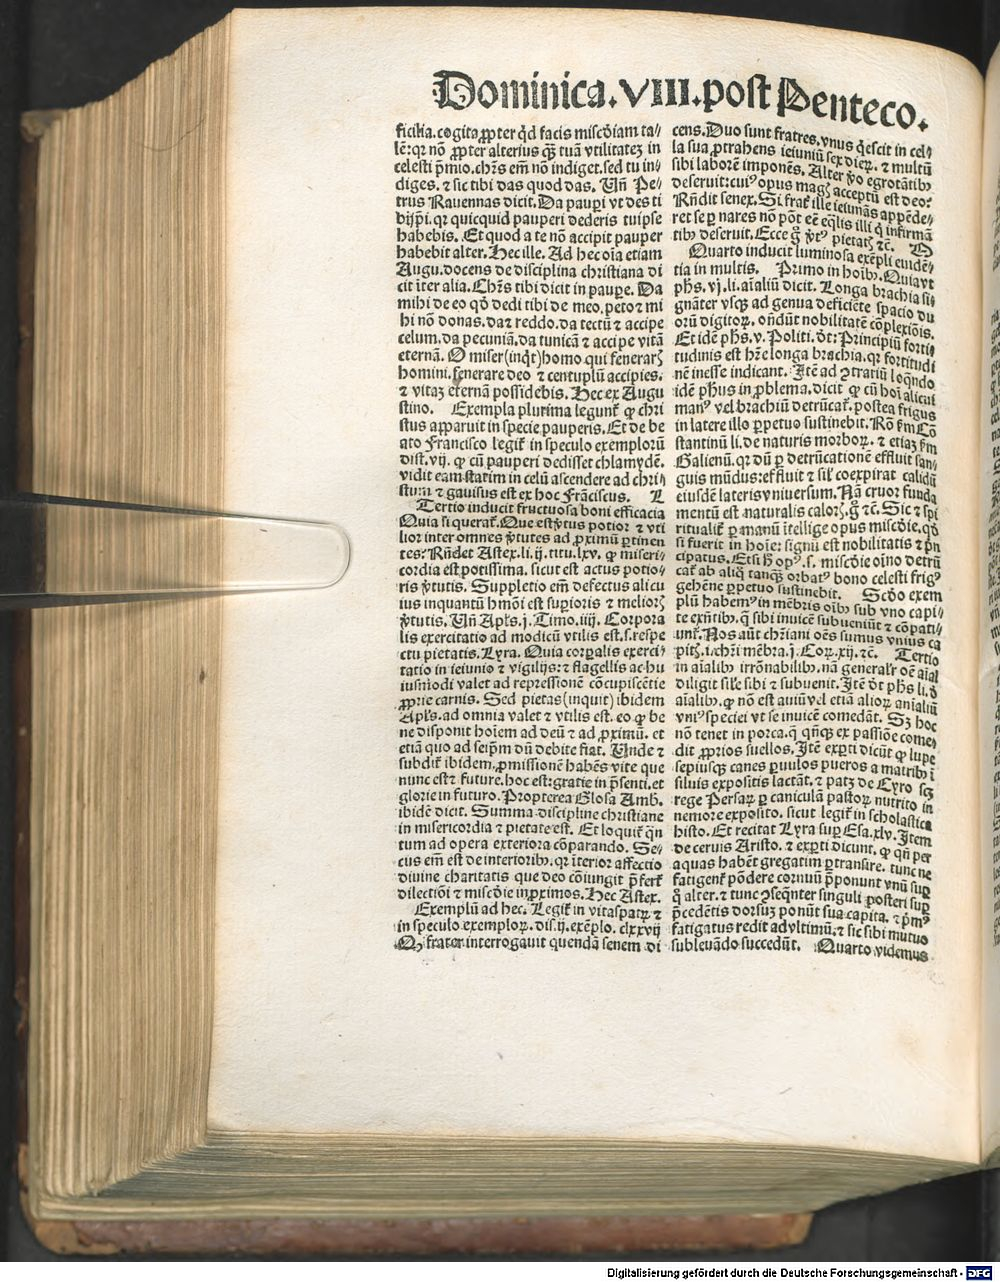 Dominica.VIII.post Penteco.
ficilia.cogita ꝓpter qd̓ facis miscd̓iam ta⸗
lē: qꝛ nō ꝓpter alterius qꝫ tuā vtilitatez in
celesti p̄mio.chꝛs em̄ nō indiget.sed tu in⸗
diges.⁊ sic tibi das quod das. Un̄ Pe⸗
trus Rauennas dicit. Da paupi vt des ti
bijp̄i. qꝛ quicquid pauperi dederis tuipse
habebis. Et quod a te nō accipit pauper
habebit alter. Hec ille. Ad hec oīa etiam
Augu.docens de disciplina christiana di
cit īter alia. Chꝛs tibi dicit in paupe. Da
mihi de eo qd̓ dedi tibi de meo.peto⁊ mi
hi nō donas.da⁊ reddo.da tectū ⁊ accipe
celum.da pecuniā.da tunicā ⁊ accipe vitā
eternā. O miser(inq̄t)homo qui fenerarꝫ
homini.fenerare deo ⁊ centuplū accipies.
⁊ vitaꝫ eternā possidebis. Hec ex Augu
stino. Exempla plurima legunt̄ ꝙ chri
stus apparuit in specie pauperis. Et de be
ato Francisco legit̄ in speculo exemplorū
dist.vij. ꝙ cū pauperi dedisset chlamydē.
vidit eam statim in celū ascendere ad chri⸗
stum ⁊ gauisus est ex hoc Frāciscus. L
Tertio inducit fructuosa boni efficacia
Quia si querat̄. Que est v̓tus potior ⁊ vti
lior inter omnes v̓tutes ad ꝓximū pertinen
tes: Rn̄det Astex.li.ij.titu.lxv. ꝙ miseri⸗
cordia est potissima. sicut est actus potio⸗
ris v̓tutis. Suppletio em̄ defectus alicu
ius inquantū hm̄oi est supioris ⁊ meliorꝫ
v̓tutis. Un̄ Apls.j.Timo.iiij. Corpora
lis exercitatio ad modicū vtilis est.s.respe
ctu pietatis. Lyra. Quia corpalis exerci⸗
tatio in ieiunio ⁊ vigilijs: ⁊ flagellis ac hu
iusmodi valet ad repressionē cōcupiscētie
ꝓprie carnis. Sed pietas(inquit)ibidem
Apls.ad omnia valet ⁊ vtilis est. eo ꝙ be
ne disponit hoīem ad deū ⁊ ad ꝓximū. et
etiā quo ad seipm̄ dū debite fiat. Unde ⁊
subdit̄ ibidem.ꝓmissionē habēs vite que
nunc est⁊ future.hoc est:gratie in p̄senti.et
glorie in futuro. Propterea Glosa Amb.
ibidē dicit. Summa discipline christiane
in misericordia ⁊ pietate est. Et loquit̄ q̄n
tum ad opera exteriora cōparando. Se⸗
cus em̄ est de interiorib̓. qꝛ īterior affectio
diuine charitatis que deo cōiungit p̄fert̄
dilectiōi ⁊ miscd̓ie in ꝓximos. Hec Astex.
Exemplū ad hec. Legit̄ in vitaspatꝝ ⁊
in speculo exemploꝝ. dis.ij.exēplo.clxxvij
Q̓ frater interrogauit quendā senem di
cens. Duo sunt fratres. vnus q̓escit in cel⸗
la sua ꝓtrahens ieiuniū sex dieꝝ. ⁊ multū
sibi laborē imponēs. Alter v̓o egrotātib̓
deseruit: cui᷒ opus magꝫ acceptū est deo?
Rn̄dit senex. Si frat̄ ille ieiunās appēde⸗
ret se p nares nō pōt eē eq̄lis illi q̓ infirmā
tib̓ deseruit. Ecce g̓ v̓t᷒ pietatꝫ ⁊c.
Quarto inducit luminosa exēpli euidē⸗
tia in multis. Primo in hoīb̓. Quia vt
phs.vj.li.aīaliū dicit. Longa brachia si⸗
gnāter vsqꝫ ad genua deficiēte spacio du
orū digitoꝝ. on̄dūt nobilitatē cōplexiōis.
Et idē phs.v.Politi.dt̓: Principiū forti⸗
tudinis est hr̄e longa brachia. qꝛ fortitudi
nē inesse indicant. Itē ad ꝯtrariū loq̄ndo
idē phus in ꝓblema.dicit ꝙ cū hoī alicui
man᷒ vel brachiū detrūcat̄. postea frigus
in latere illo ppetuo sustinebit. Rō fm Cō
stantinū li. de naturis morboꝝ. ⁊ etiaꝫ fm
Galienū. qꝛ dū p detrūcationē effluit san⸗
guis mūdus: effluit ⁊ sil̓ coexpirat calidū
eiusdē lateris vniuersum. Nā cruor funda
mentū est naturalis calorꝫ.g̓ ⁊c. Sic ⁊ spi
ritualit̄ p manū ītellige opus miscd̓ie. qd̓
si fuerit in hoīe: signū est nobilitatis ⁊ p̄n
cipatus. Et si h̓ op᷒.s. miscd̓ie oīno detrū
cat̄ ab aliq̓ tanqꝫ orbat᷒ bono celesti frig᷒
gehēne ppetuo sustinebit. Scd̓o exem
plū habem᷒ in mēbris oīb̓ sub vno capi⸗
te exn̄tib̓. q̓ sibi inuicē subueniūt ⁊ cōpati⸗
unt̄. Nos aūt chr̄iani oēs sumus vnius ca
pitꝫ.i.chr̄i mēbra.j.Coꝝ.xij.⁊c. Tertio
in aīalib̓ irrōnabilib̓. nā generalr̄ oē aīal
diligit sile sibi ⁊ subuenit. Itē dt̓ phs li. d̓
aīalib̓. ꝙ nō est auiū vel etiā alioꝝ aīaliū
vni᷒ speciei vt se inuicē comedāt. Sꝫ hoc
nō tenet in porca. q̓ q̄nqꝫ ex passiōe come⸗
dit ꝓprios suellos. Itē expti dicūt ꝙ lupe
sepiusqꝫ canes paruulos pueros a matrib̓ ī
siluis expositis lactāt. ⁊ patꝫ de Cyro scꝫ
rege Persaꝝ p caniculā pastoꝝ nutrito in
nemore exposito. sicut legit̄ in scholastica
histo. Et recitat Lyra sup Esa.xlv. Item
de ceruis Aristo. ⁊ expti dicunt. ꝙ qn̄ per
aquas habēt gregatim ptransire. tunc ne
fatigent̄ pōdere cornuū p̄ponunt vnū sup
q̓ alter. ⁊ tunc ꝯseqn̄ter singuli posteri sup
p̄cedētis dorsuꝫ ponūt sua capita. ⁊ p̄m᷒
fatigatus redit ad vltimū.⁊ sic sibi mutuo
subleuādo succedūt. Quarto videmus
Digitalisierung gefördert durch die Deutsche Forschungsgemeinschaft - DFG